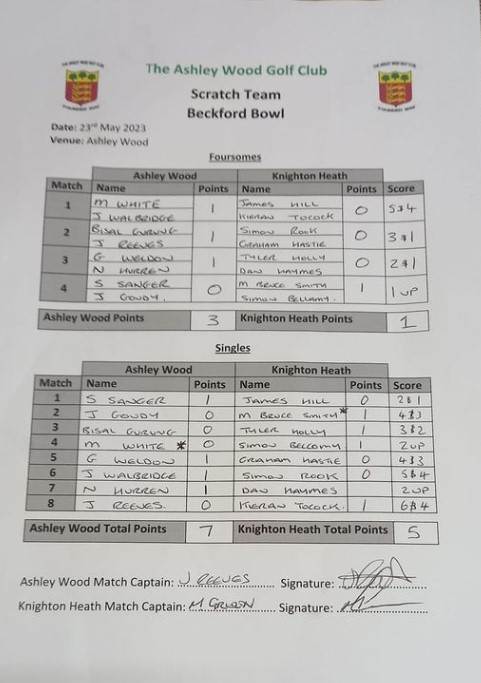 The Ashley Wood Golf Club
Scratch Team
Beckford Bowl
Date: 23rd May 2023
Venue: Ashley Wood
Foursomes
Ashley Wood Knighton Heath
Match Name Points Name Points Score
1 M WHITE 1 JAMES HILL 0 5&4
J WALBRIDGE KIERAN TOCOCK
2 BISAL GURUNG 1 SIMON ROOK 0 3&1
J REEVES GRAHAM HASTIE
3 G WELDON 1 TYLER HOLLY 0 2&1
N HURREN DAN HAMMES
4 S SANGER 0 M BRUCE SMITH 1 1 UP
J GOUDY. SIMON BELLAMY.
Ashley Wood Points 3 Knighton Heath Points 1
Singles
Ashley Wood Knighton Heath
Match Name Points Name Points Score
1 S SANGER 1 JAMES HILL 0 2&1
2 J GOUDY 0 M BRUCE SMITH* 1 4&3
3 BISAL GURUNG 0 TYLER HOLLY 1 3&2
4 M WHITE * 0 SIMON BELLAMY 1 2UP
5 G WELDON 1 GRAHAM HASTIE 0 4&3
6 J WALBRIDGE 1 SIMON ROOK 0 5&4
7 N HURREN 1 DAN HAMMES 2UP
8 J REEVES. 0 KIERAN TOCOCK. 1 6&4
Ashley Wood Total Points 7 Knighton Heath Total Points 5
Ashley Wood Match Captain: J REEVES Signature:
Knighton Heath Match Captain: M Signature: